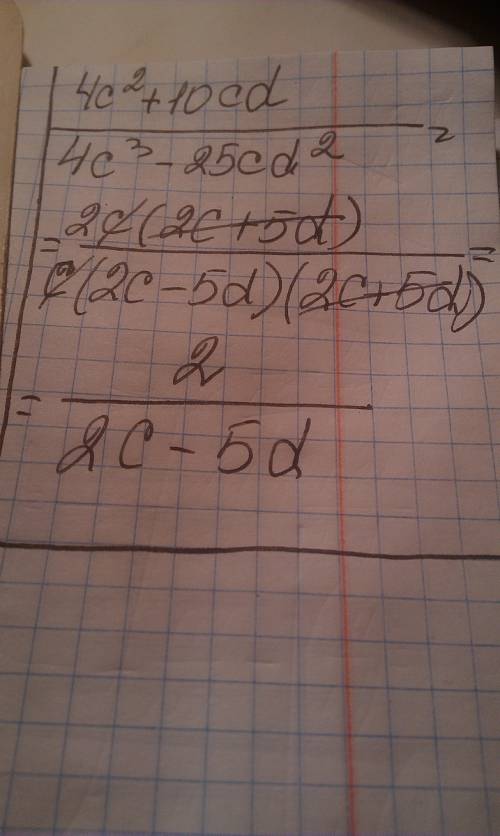 4c²+10cd
4c³-25cd² =
= 2c(2c+5d) =
c(2c-5d)(2c+5d)
= 2
2c-5d